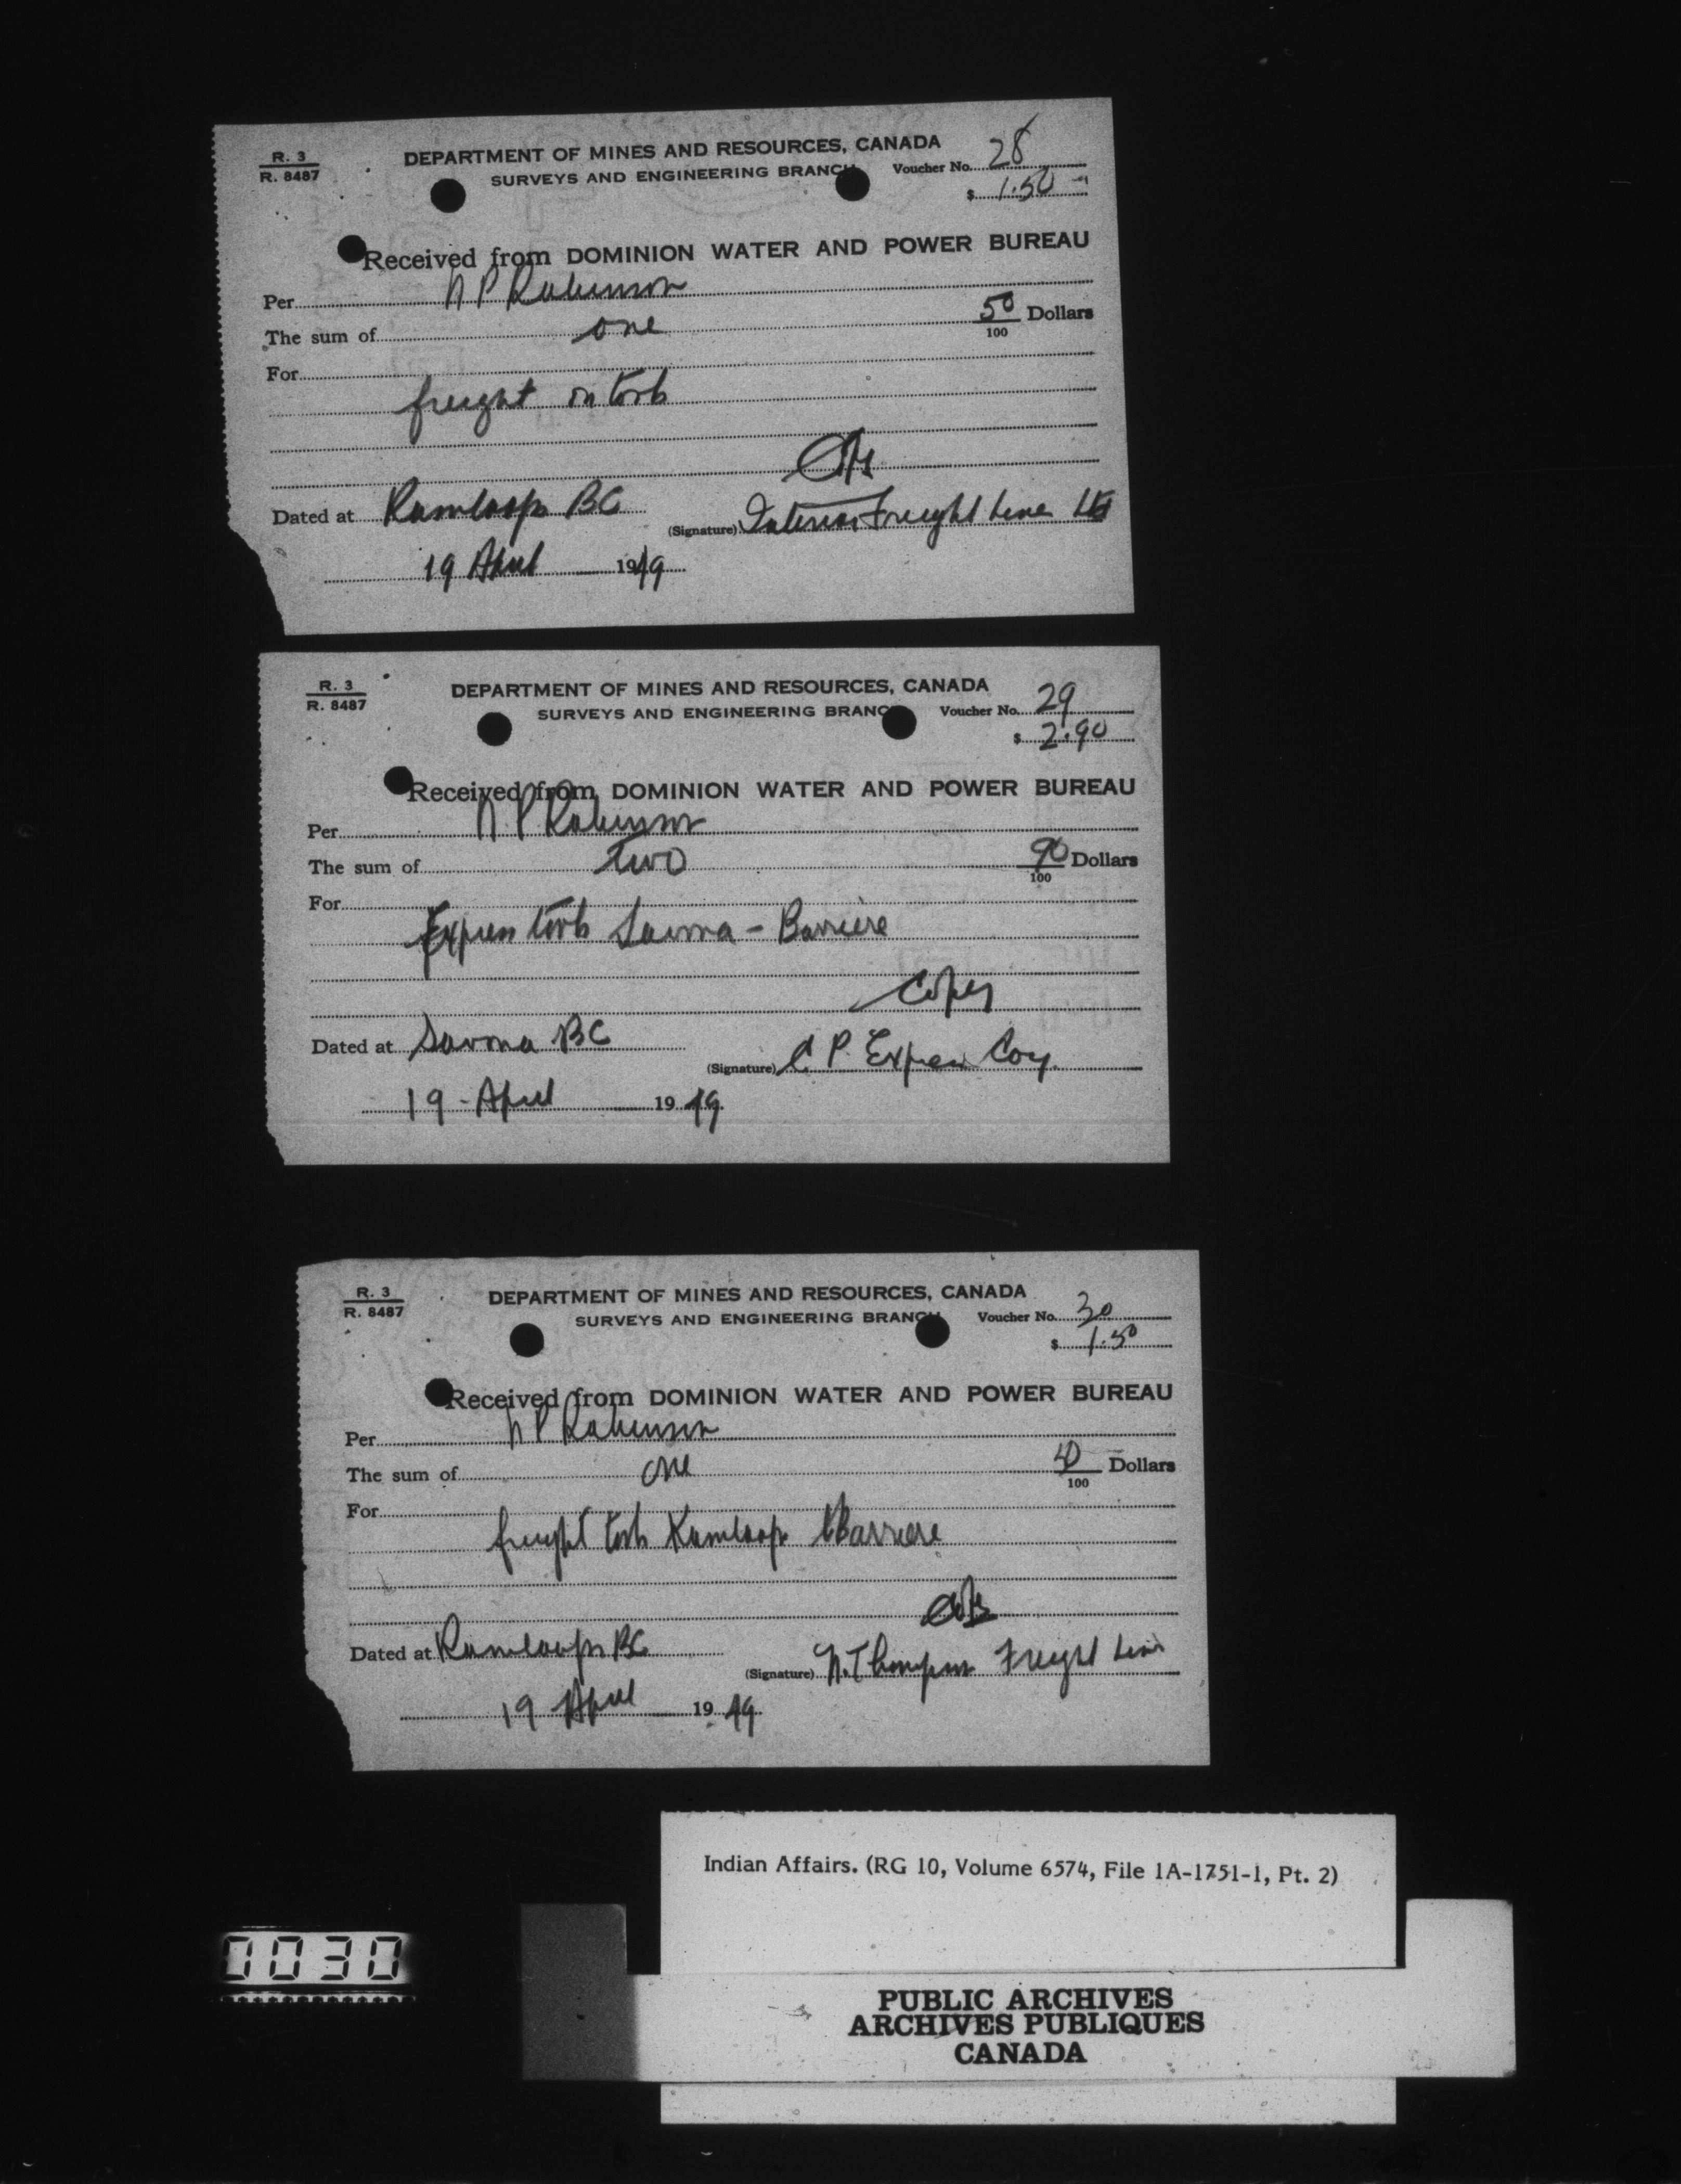 R. 3
R. 8487
DEPARTMENT OF MINES AND RESOURCES, CANADA
SURVEYS AND ENGINEERING BRANCH
Voucher No. 28
$ 1.50
Received from DOMINION WATER AND POWER BUREAU
Per N P Robinson
The sum of one 50/100 Dollars
For
freight on
Dated at Kamloops BC
(Signature) Interior Freight Lines Ltd
19 April 1949
R. 3
R. 8487
DEPARTMENT OF MINES AND RESOURCES, CANADA
SURVEYS AND ENGINEERING BRANCH
Voucher No. 29
$ 2.90
Received from DOMINION WATER AND POWER BUREAU
Per N P Robinson
The sum of Two 90/100 Dollars
For
Express Savona - Barriere
Dated at Savona BC
(Signature) C P Express Coy.
19 - April 1949
R. 3
R. 8487
DEPARTMENT OF MINES AND RESOURCES, CANADA
SURVEYS AND ENGINEERING BRANCH
Voucher No. 30
$ 1.50
Received from DOMINION WATER AND POWER BUREAU
Per N P Robinson
The sum of one 50/100 Dollars
For
freight Kamloops Barriere
Dated at Kamloops BC
(Signature) N. Thompson Freight Line
19 April 1949
Indian Affairs. (RG 10, Volume 6574, File 1A-1751-1, Pt. 2)
0030
PUBLIC ARCHIVES
ARCHIVES PUBLIQUES
CANADA